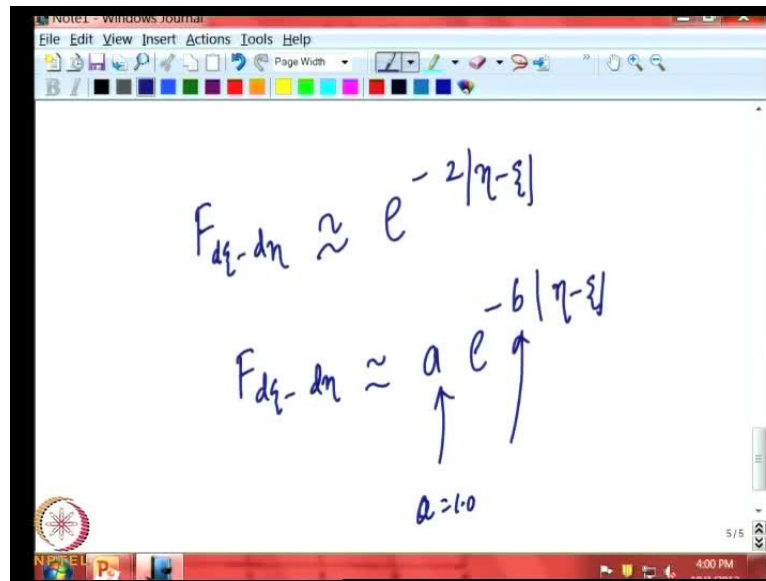 Note1 - Windows Journal
File Edit View Insert Actions Tools Help
Page Width
B I
F_{dξ-dη} ≈ e^{-2|η-ξ|}
F_{dξ-dη} ≈ a e^{-b|η-ξ|}
a=1.0
5/5
NPTEL
4:00 PM